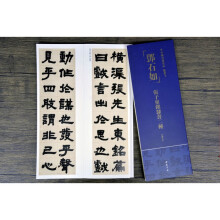 橫渠張先生東銘篇
曰戲言出於思也戲
動作於謀也發乎聲
見乎四肢謂非己心
鄧石如